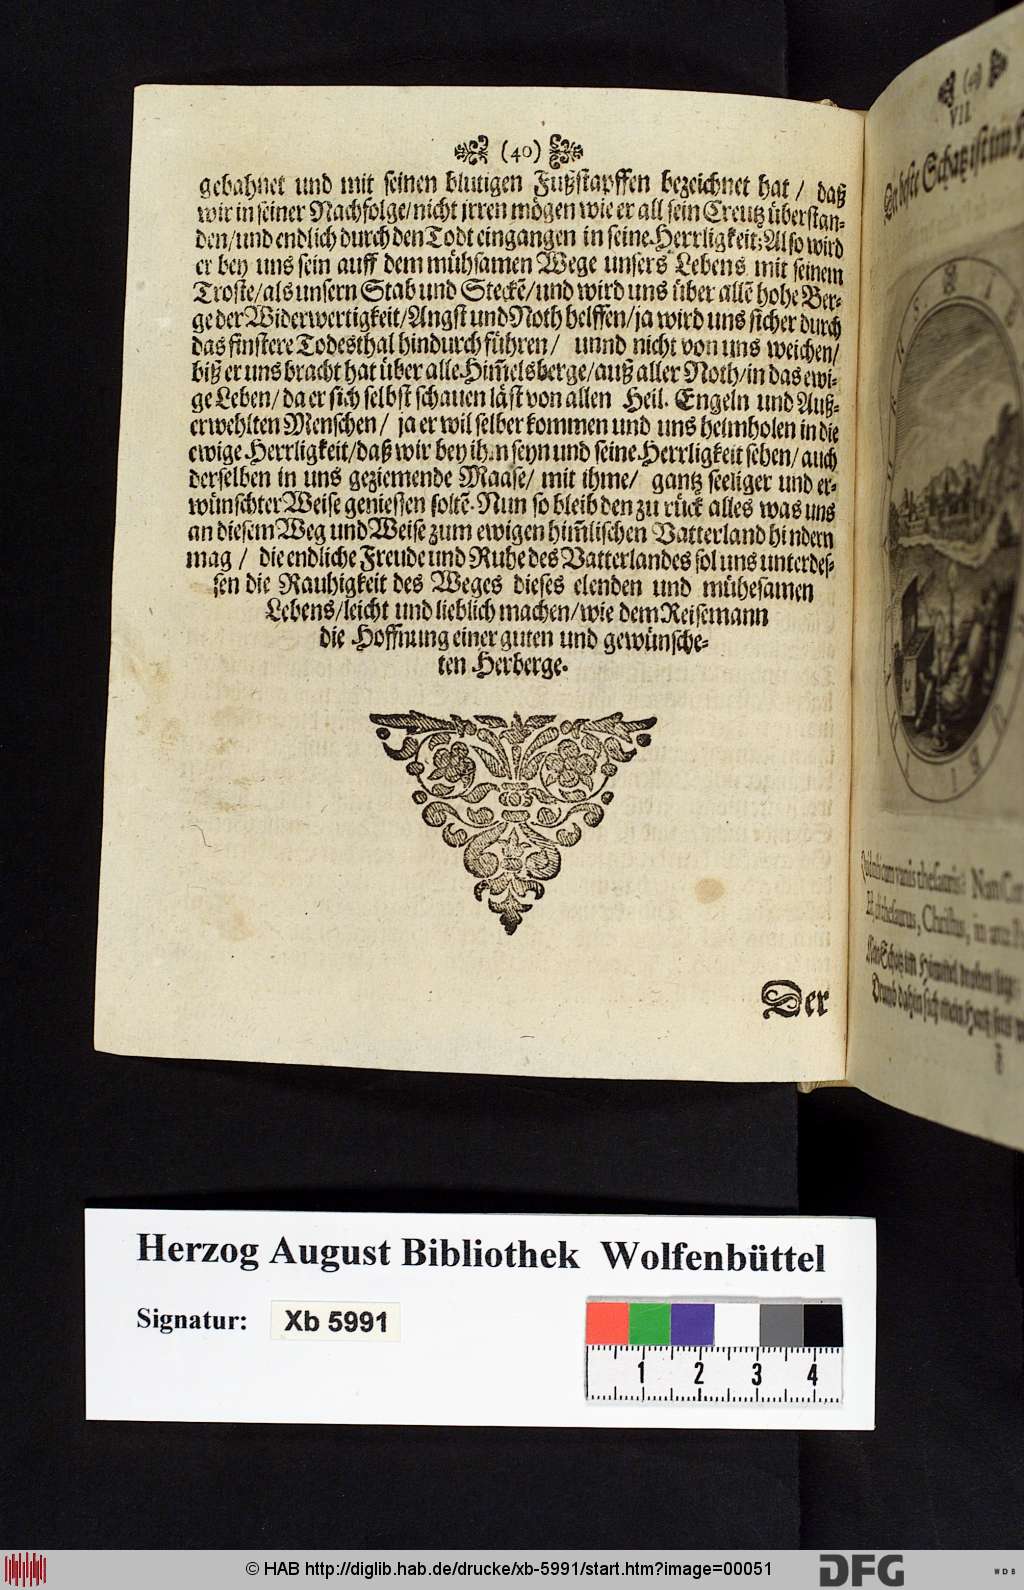 (40)
gebahnet und mit seinen blutigen Fußstapffen bezeichnet hat / daß
wir in seiner Nachfolge/nicht jrren mögen wie er all sein Creutz überstan-
den/und endlich durch den Todt eingangen in seine Herrligkeit; Also wird
er bey uns sein auff dem mühsamen Wege unsers Lebens mit seinem
Troste/als unsern Stab und Steckē/und wird uns über allē hohe Ber-
ge der Widerwertigkeit/Angst und Noth helffen/ja wird uns sicher durch
das finstere Todesthal hindurch führen/ unnd nicht von uns weichen/
biß er uns bracht hat über alle Him̄elsberge/auß aller Noth/in das ewi-
ge Leben/da er sich selbst schauen läst von allen Heil. Engeln und Auß-
erwehlten Menschen/ ja er wil selber kommen und uns heimholen in die
ewige Herrligkeit/daß wir bey ihm seyn und seine Herrligkeit sehen/auch
derselben in uns geziemende Maase/ mit ihme/ gantz seeliger und er-
wünschter Weise geniessen soltē. Nun so bleib den zu rück alles was uns
an diesem Weg und Weise zum ewigen him̄lischen Vatterland hindern
mag / die endliche Freude und Ruhe des Vatterlandes sol uns unterdes-
sen die Rauhigkeit des Weges dieses elenden und mühesamen
Lebens/leicht und lieblich machen/wie dem Reisemann
die Hoffnung einer guten und gewünsche-
ten Herberge.
Der
VII.
Quid mihi cum vanis thesauris?
thesaurus, Christus, in
Herzog August Bibliothek Wolfenbüttel
Signatur: Xb 5991
1 2 3 4
© HAB http://diglib.hab.de/drucke/xb-5991/start.htm?image=00051
DFG
WDB